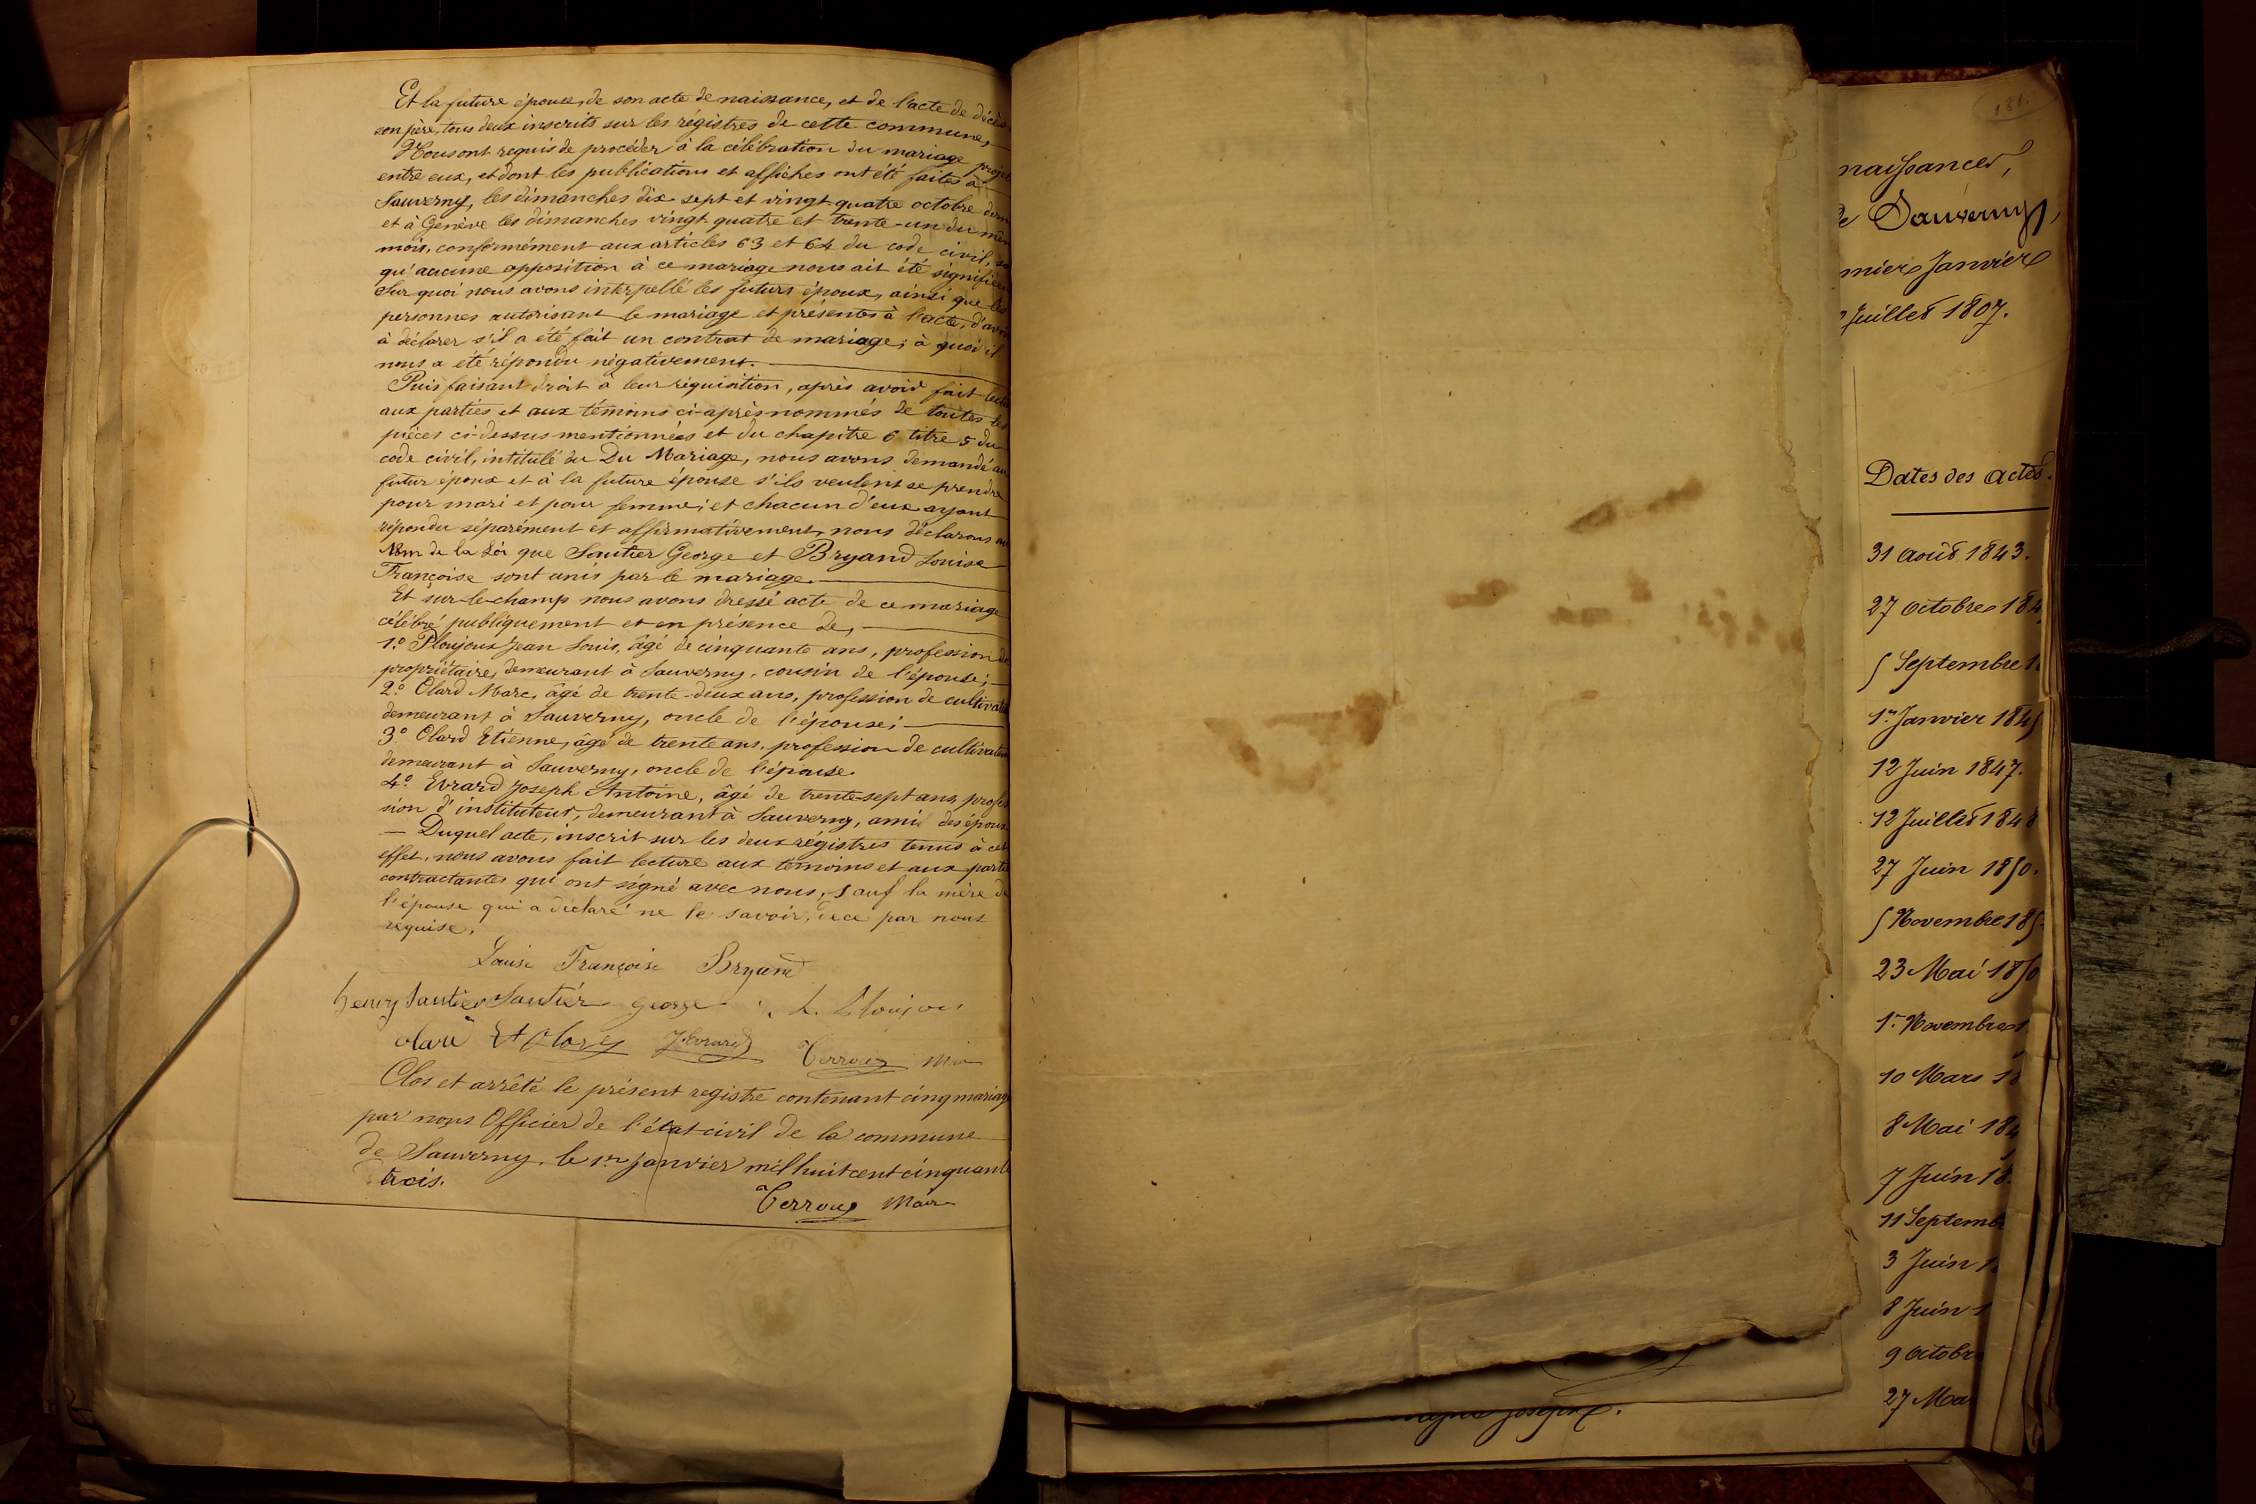 Et la future épouse, de son acte de naissance, et de l'acte de décès
son père, tous deux inscrits sur les régistres de cette commune,
Nous ont requis de procéder à la célébration du mariage projeté
entre eux, et dont les publications et affiches ont été faites à
Sauverny, les dimanches dix sept et vingt-quatre octobre dern
et à Genève les dimanches vingt-quatre et trente-un du mêm
mois, conformément aux articles 63 et 64 du code civil, sa
qu'aucune opposition à ce mariage nous ait été signifiée
Sur quoi nous avons interpellé les futurs époux, ainsi que les
personnes autorisant le mariage et présentes à l'acte, d'avoir
à déclarer s'il a été fait un contrat de mariage; à quoi il
nous a été répondu négativement.
Puis faisant droit à leur réquisition, après avoir fait lectu
aux parties et aux témoins ci-après nommés de toutes les
pièces ci-dessus mentionnées et du chapitre 6 titre 5 du
code civil, intitulé du Du Mariage, nous avons demandé au
futur époux et à la future épouse s'ils veulent se prendre
pour mari et pour femme; et chacun d'eux ayant
répondu séparément et affirmativement, nous déclarons au
Nom de la Loi que Sautier George et Bryand Louise
Françoise sont unis par le mariage.
Et sur-le-champ nous avons dressé acte de ce mariage
célébré publiquement et en présence de,
1.o Ploujoux Jean Louis, âgé de cinquante ans, profession de
propriétaire, demeurant à Sauverny, cousin de l'épouse;
2.o Olard Marc, âgé de trente-deux ans, profession de cultivate
demeurant à Sauverny, oncle de l'épouse;
3o Olard Etienne, âgé de trente ans, profession de cultivateu
demeurant à Sauverny, oncle de l'épouse.
4.o Evrard Joseph Antoine, âgé de trente-sept ans, profes
sion d'instituteur, demeurant à Sauverny, ami des époux.
— Duquel acte, inscrit sur les deux régistres tenus à cet
effet, nous avons fait lecture aux témoins et aux parti
contractantes qui ont signé avec nous, sauf la mère de
l'épouse qui a déclaré ne le savoir, de ce par nous
requise.
Louise Françoise Bryand
henry Sautier Sautier George L. Ploujoux
olard Et Olard J. Evrard Terroux Mair
Clos et arrêté le présent registre contenant cinq mariag
par nous Officier de l'état-civil de la commune
de Sauverny, le 1er janvier mil huit cent cinquante
trois.
Terroux Maire
181.
naissances,
de Sauverny,
mier Janvier
Juillet 1807.
Dates des actes.
31 Août 1843.
27 Octobre 184
5 Septembre 1
1er Janvier 1845
12 Juin 1847.
12 Juillet 1848
27 Juin 1850.
5 Novembre 185
23 Mai 1850
1er Novembre 1
10 Mars 18
8 Mai 184
7 Juin 18
11 Septemb
3 Juin 1
8 Juin 1
9 Octobre
27 Ma